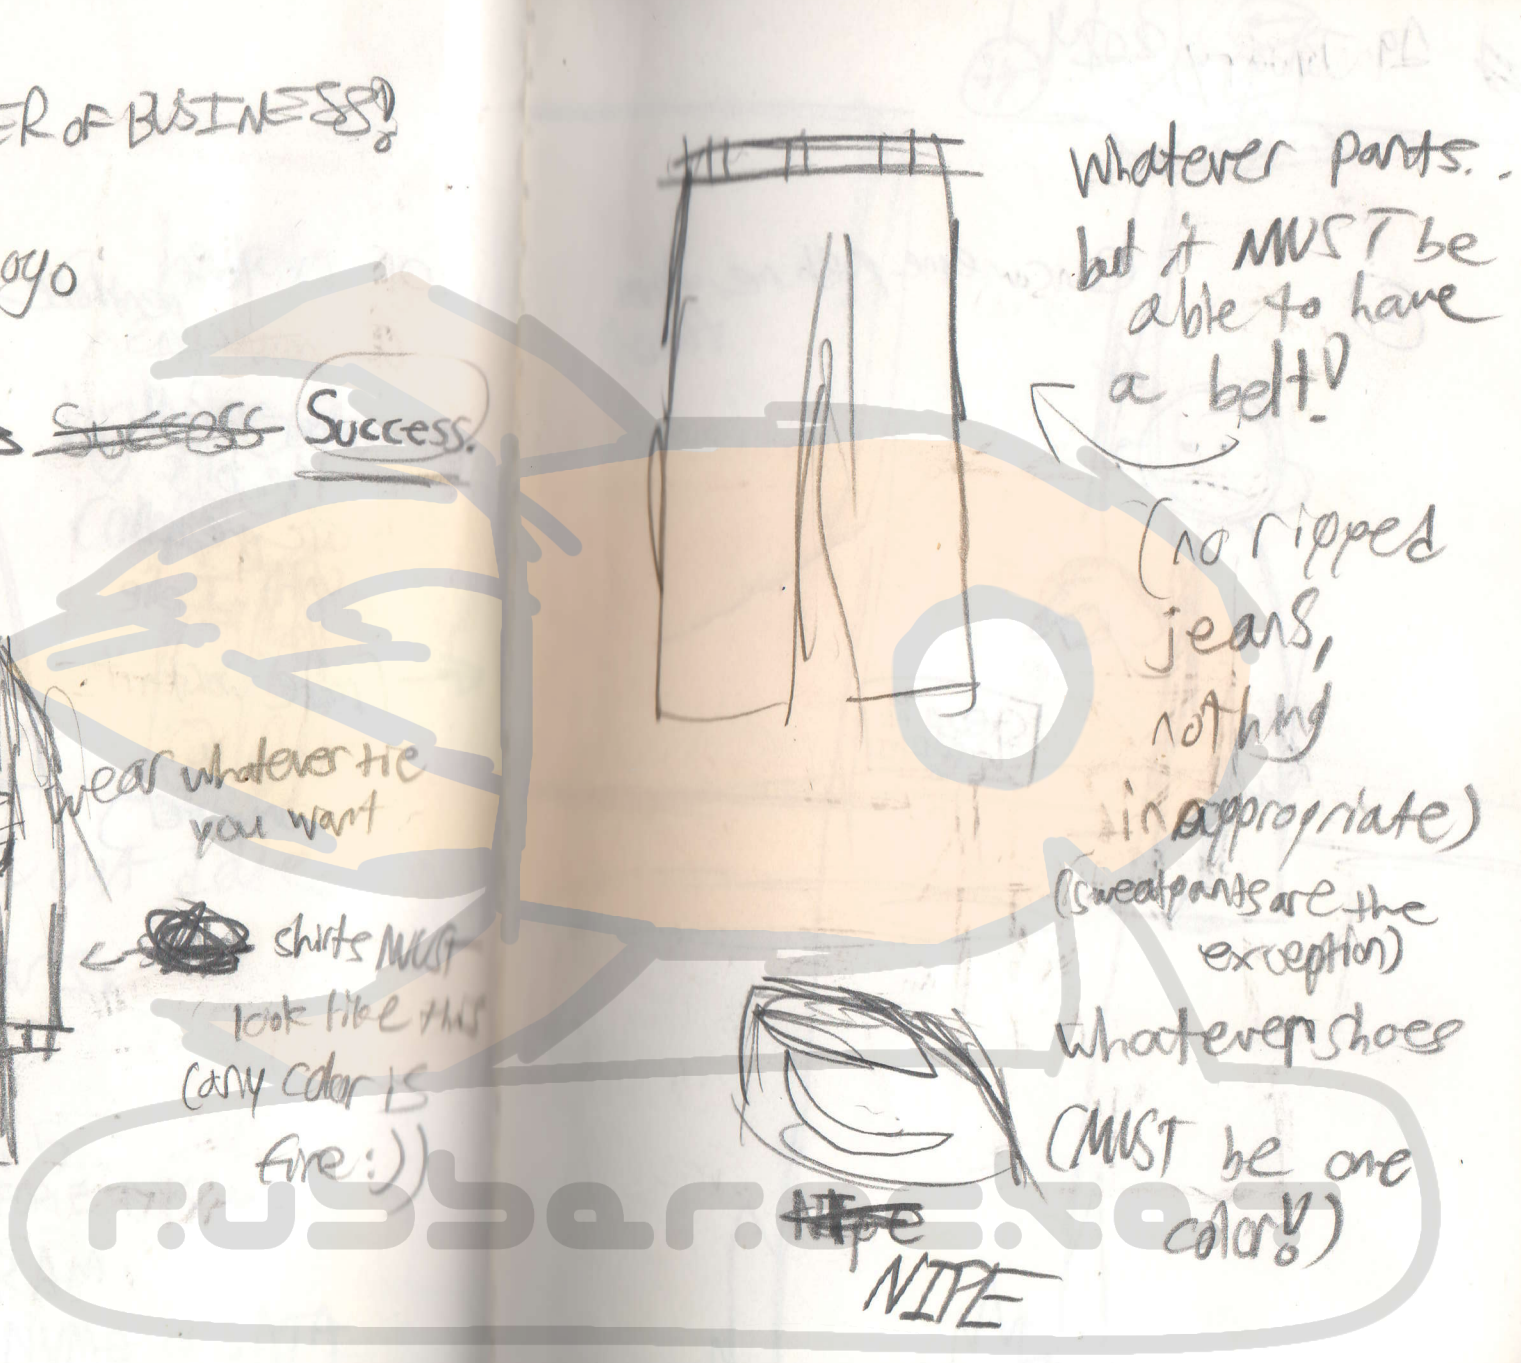 ER OF BUSINESS!
ogo
Success Success.
wear whatever tie
you want
shirts MUST
look like this
(any color is
fine:))
Whatever pants..
but it MUST be
able to have
a belt!
(no ripped
jeans,
nothing
inappropriate)
(sweatpants are the
exception)
whatever shoes
(MUST be one
color!)
Nipe
NIPE